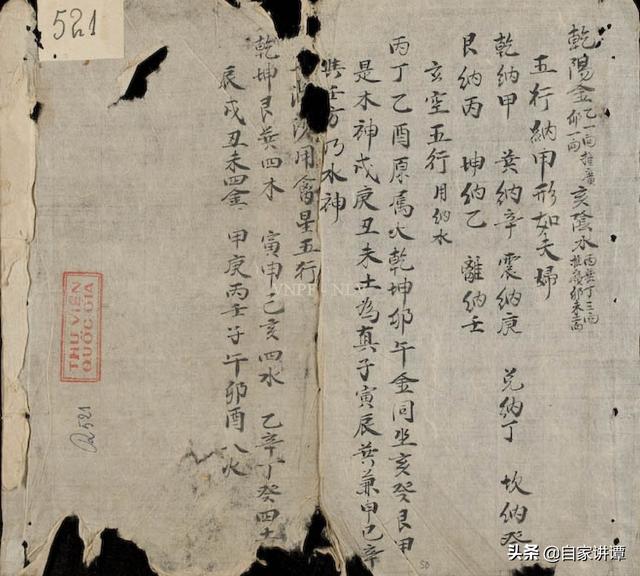 521
乾陽金 亥陰水
五行納甲形如夫婦
乾納甲 巽納辛 震納庚 兌納丁 坎納癸
艮納丙 坤納乙 離納壬
玄空五行 用納水
丙丁乙酉原属火乾坤卯午金同坐亥癸艮甲
是木神戌庚丑未土為真子寅辰巽兼申己辛
與壬方乃水神
用禽星五行
乾坤艮巽四木 寅申己亥四水 乙辛丁癸四土
辰戌丑未四金 甲庚丙壬子午卯酉八火
THƯ VIỆN
QUỐC GIA
R521
VNPF NLV
50
头条 @自家讲谭